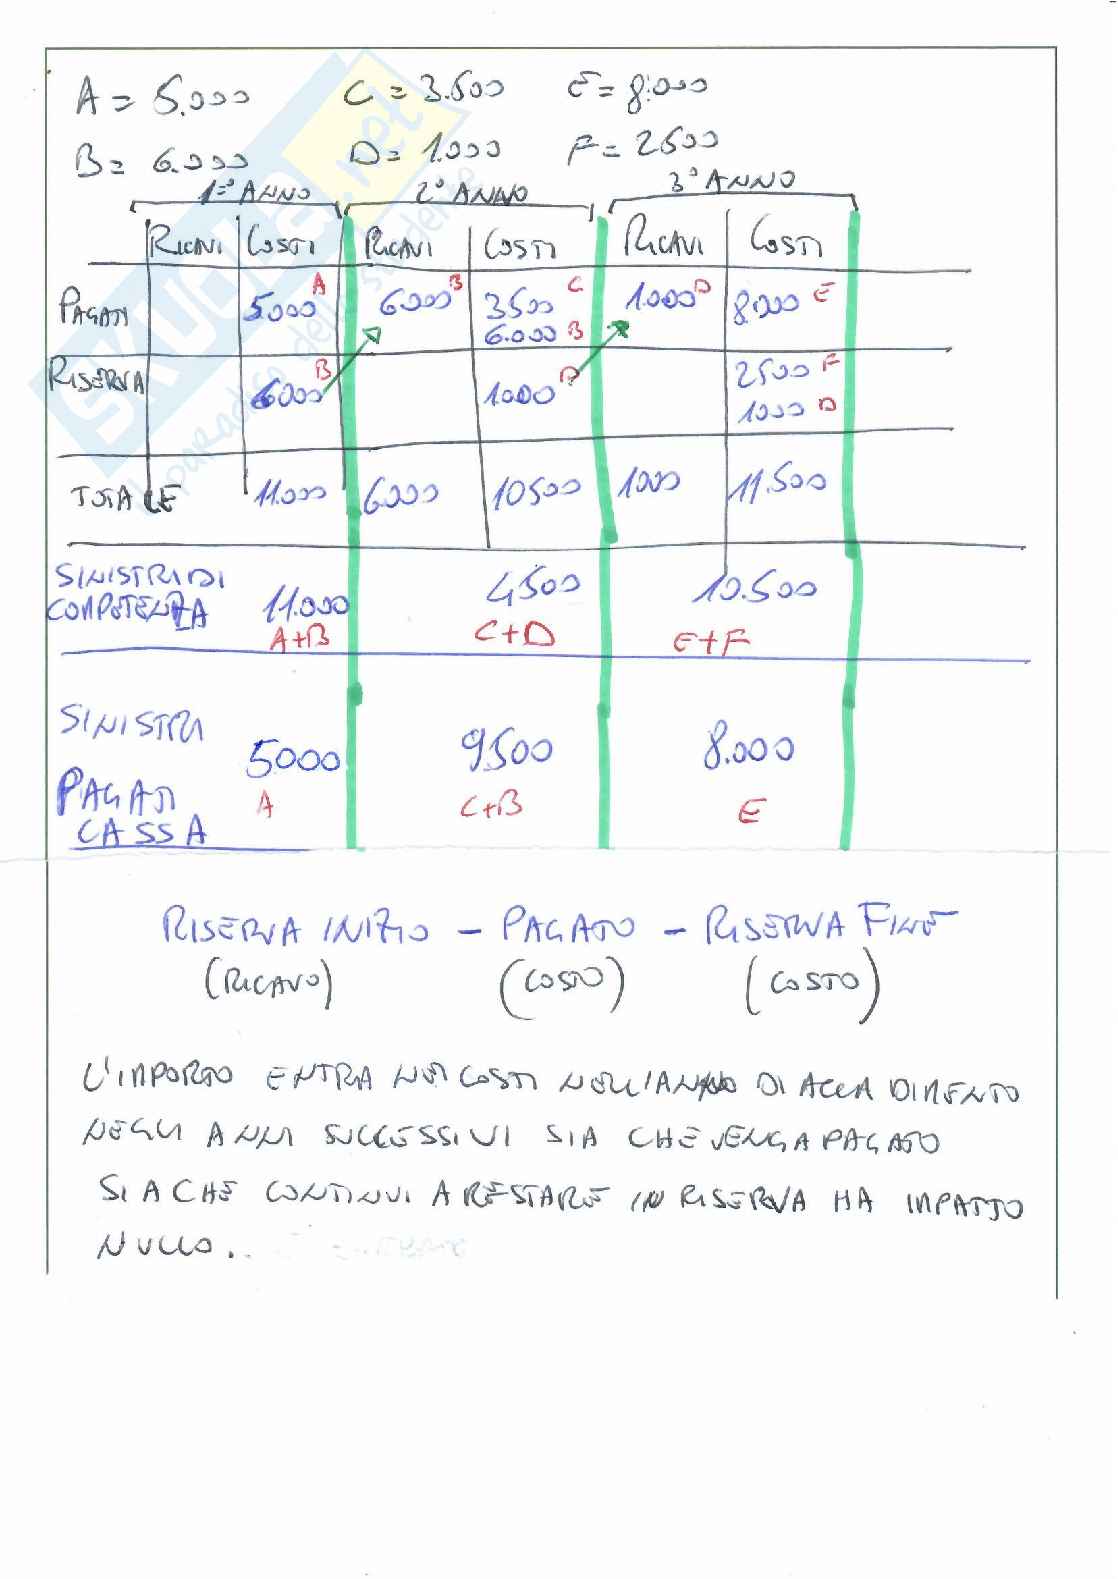 A = 5.000 C = 3.500 E = 8.000
B = 6.000 D = 1.000 F = 2500
1° ANNO 2° ANNO 3° ANNO
RICAVI COSTI RICAVI COSTI RICAVI COSTI
PAGATI 5000 A 6000 B 3500 C 1.000 D 8.000 E
6.000 B
RISERVA 6000 B 1000 D 2500 F
1000 D
TOTALE 11.000 6000 10500 1000 11.500
SINISTRI DI
COMPETENZA 11.000 4500 10.500
A+B C+D E+F
SINISTRI
PAGATI 5000 9500 8.000
CASSA A C+B E
RISERVA INIZIO - PAGATO - RISERVA FINE
(RICAVO) (COSTO) (COSTO)
L'IMPORTO ENTRA NEI COSTI NELL'ANNO DI ACCADIMENTO
NEGLI ANNI SUCCESSIVI SIA CHE VENGA PAGATO
SIA CHE CONTINUI A RESTARE IN RISERVA HA IMPATTO
NULLO..
SKUOLA.net
il paradiso dello studente